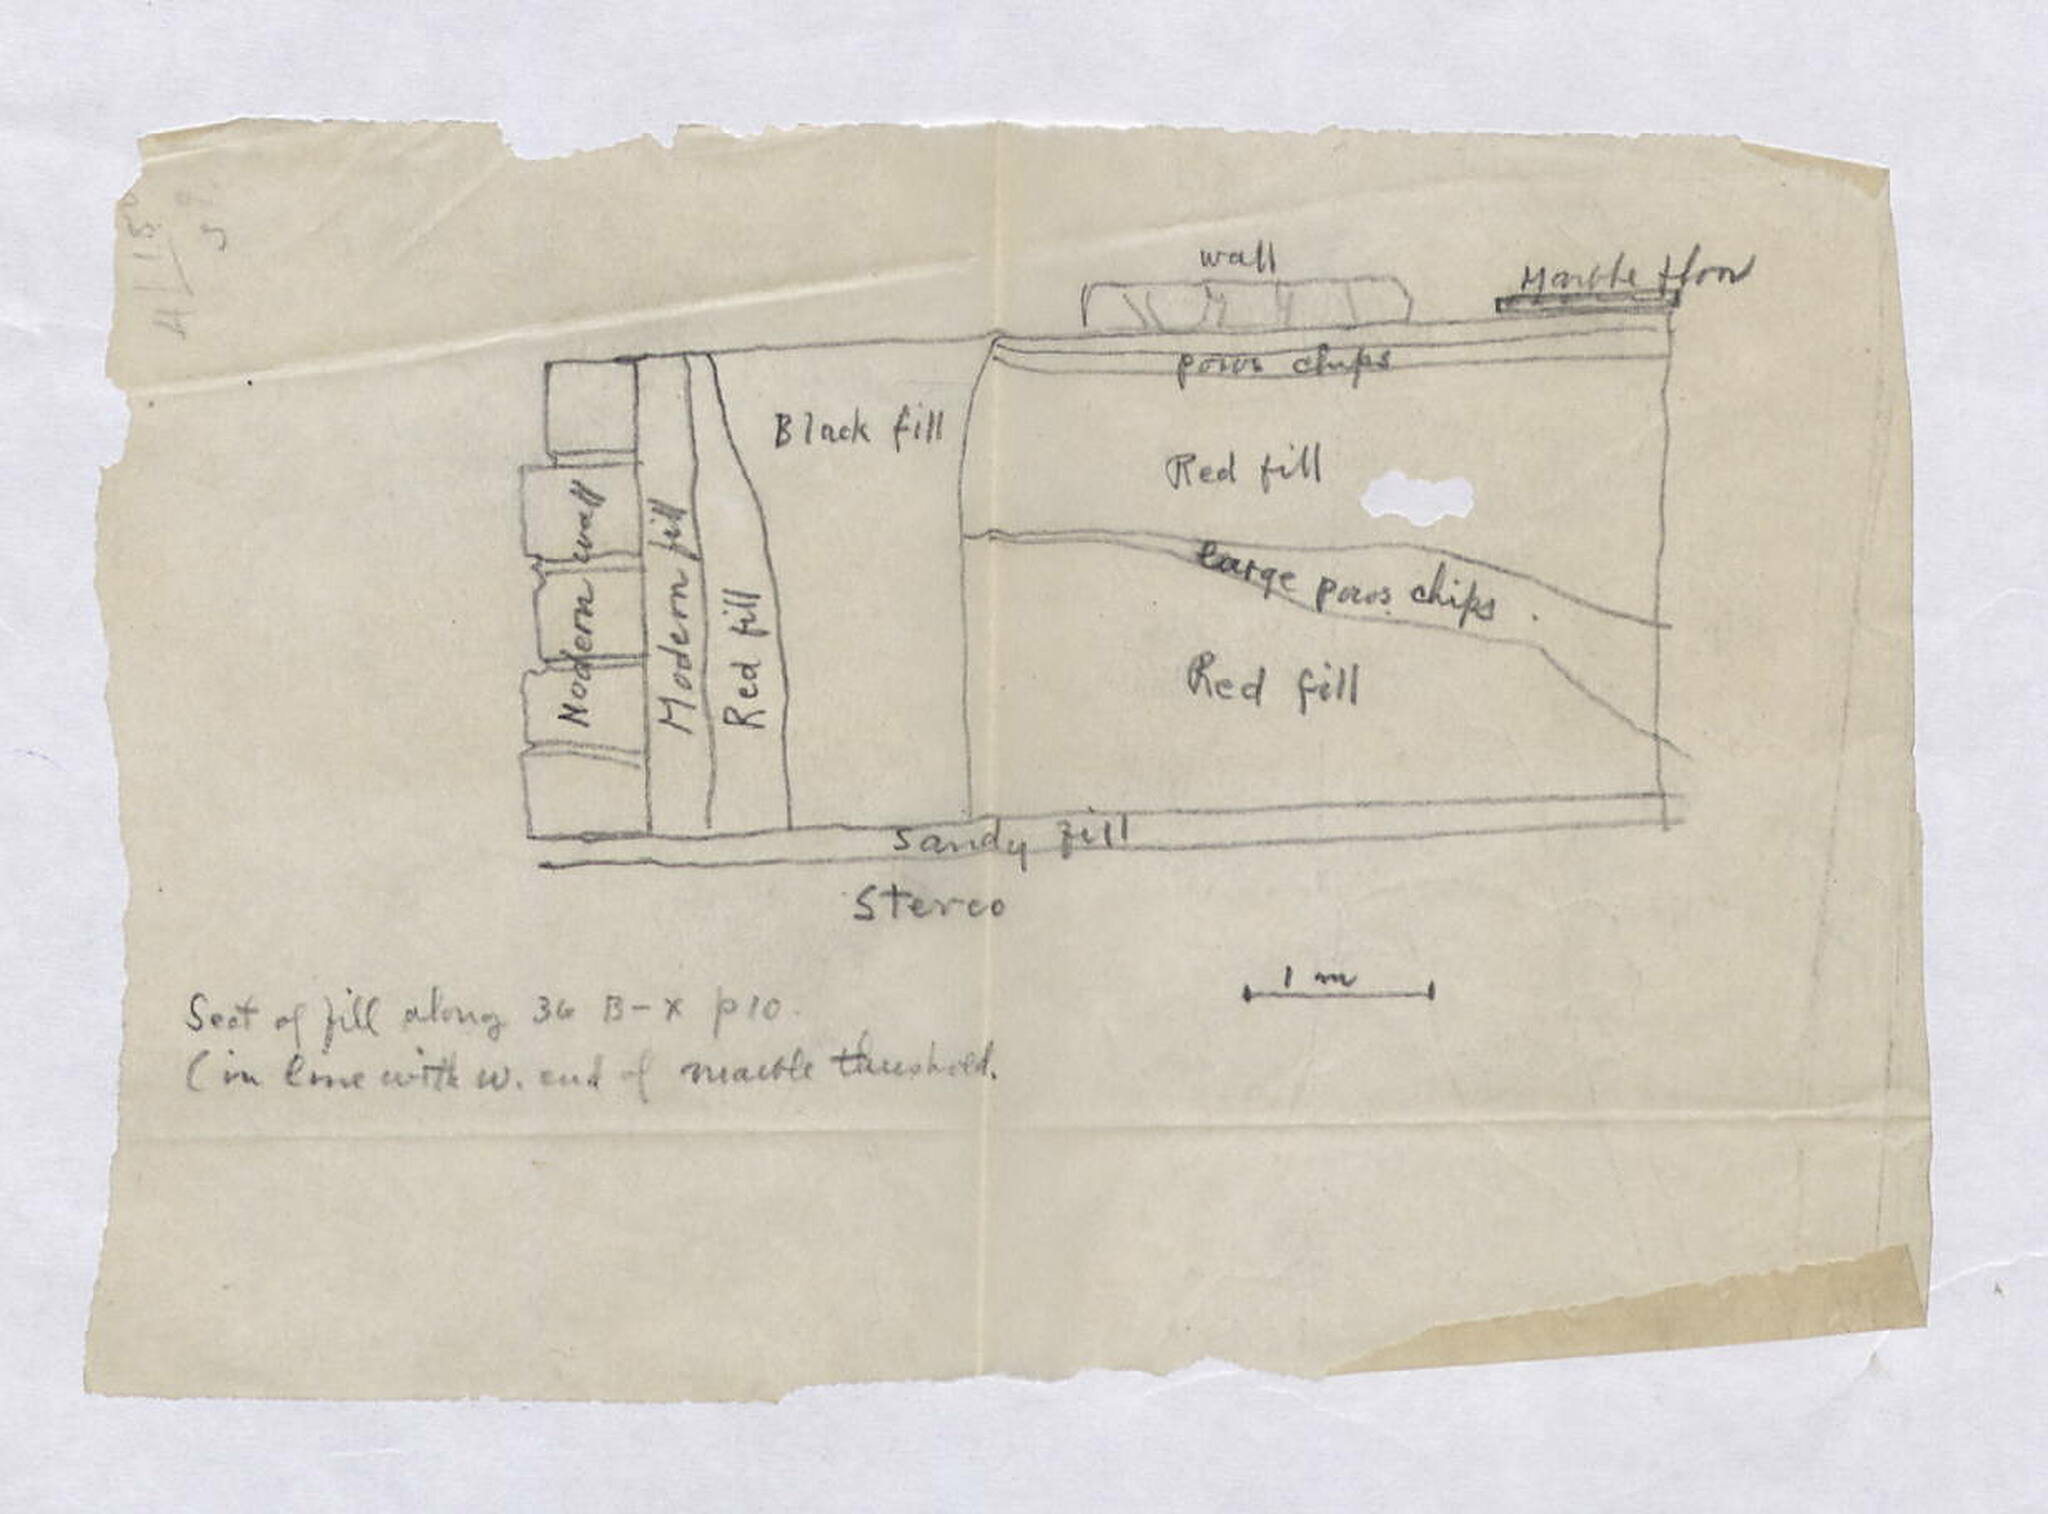 wall
Marble floor
poros chips
Black fill
Red fill
large poros chips
Red fill
Modern wall
Modern fill
Red fill
Sandy fill
Stereo
1 m
Sect of fill along 36 B-X p 10.
(in line with w. end of marble threshold.